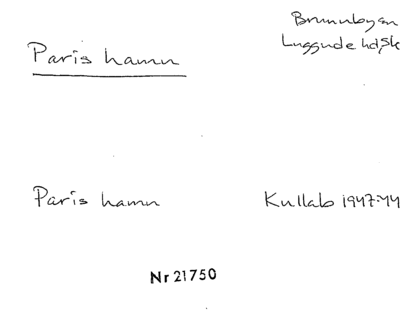 Paris hamn
Brunnbyan
Luggude hdsk
Paris hamn
Kullab 1947:44
Nr 21750